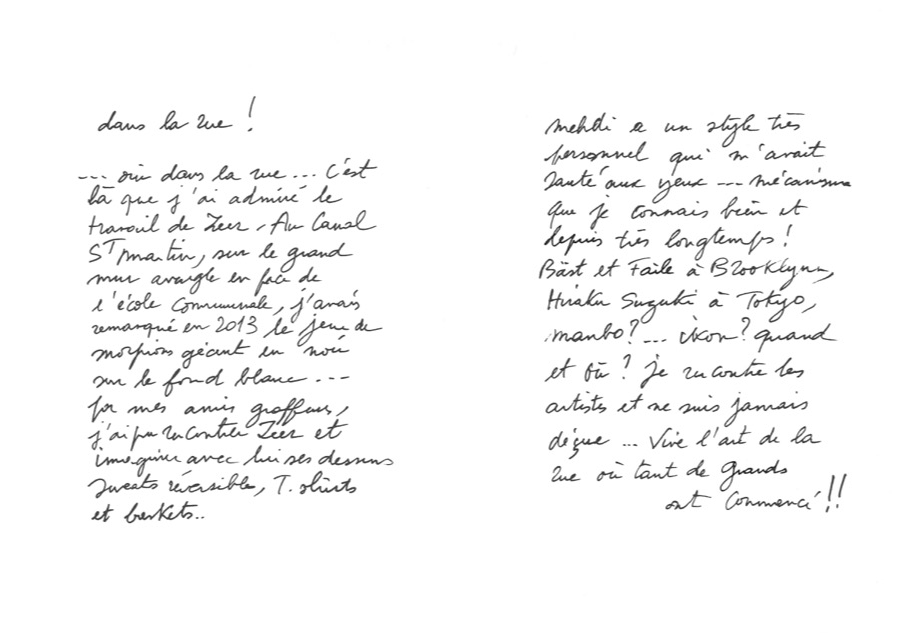 dans la rue !
--- oui dans la rue ... C'est
là que j'ai admiré le
travail de Zeer. Au Canal
ST Martin, sur le grand
mur aveugle en face de
l'école Communale, j'avais
remarqué en 2013 le jeu de
morpions géant en noir
sur le fond blanc ---
par mes amis graffeurs,
j'ai pu rencontrer Zeer et
imaginer avec lui ses dessins
sweats réversible, T. shirts
et baskets..
Mehdi a un style très
personnel qui m'avait
sauté aux yeux --- Mécanisme
que je connais bien et
depuis très longtemps !
Bäst et Faile à Brooklynn,
Hiraku Suzuki à Tokyo,
manbo ? ... ikon ? quand
et où ? je rencontre les
artistes et ne suis jamais
déçue ... Vive l'art de la
rue où tant de grands
ont Commencé !!